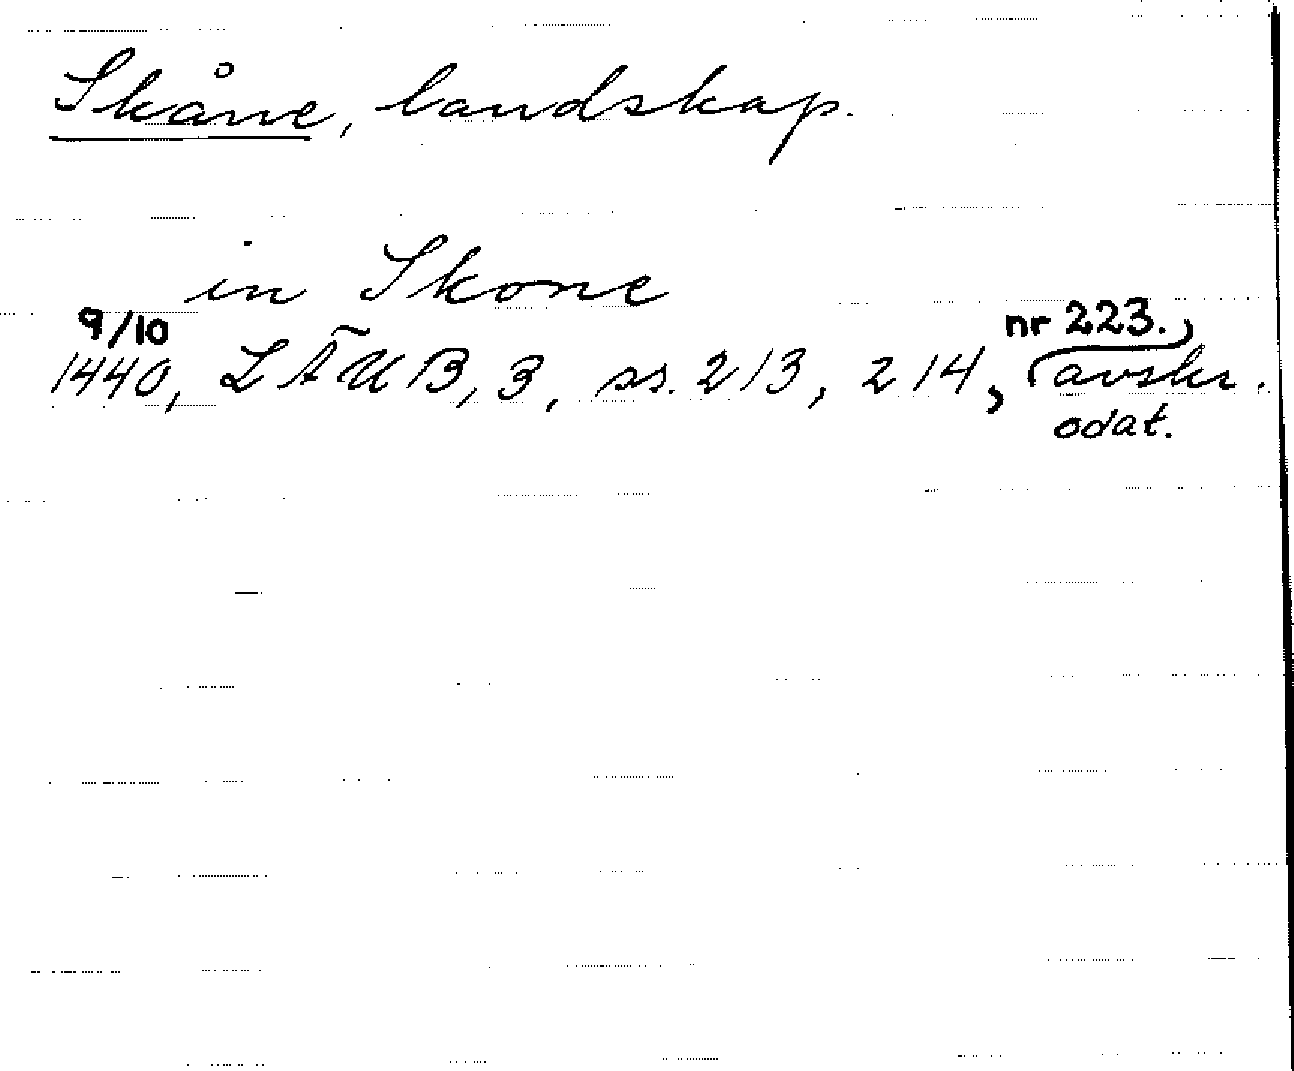 Skåne, landskap.
in Skone
9/10 nr 223.,
1440, LÄUB, 3, ss. 213, 214, avskr.
odat.